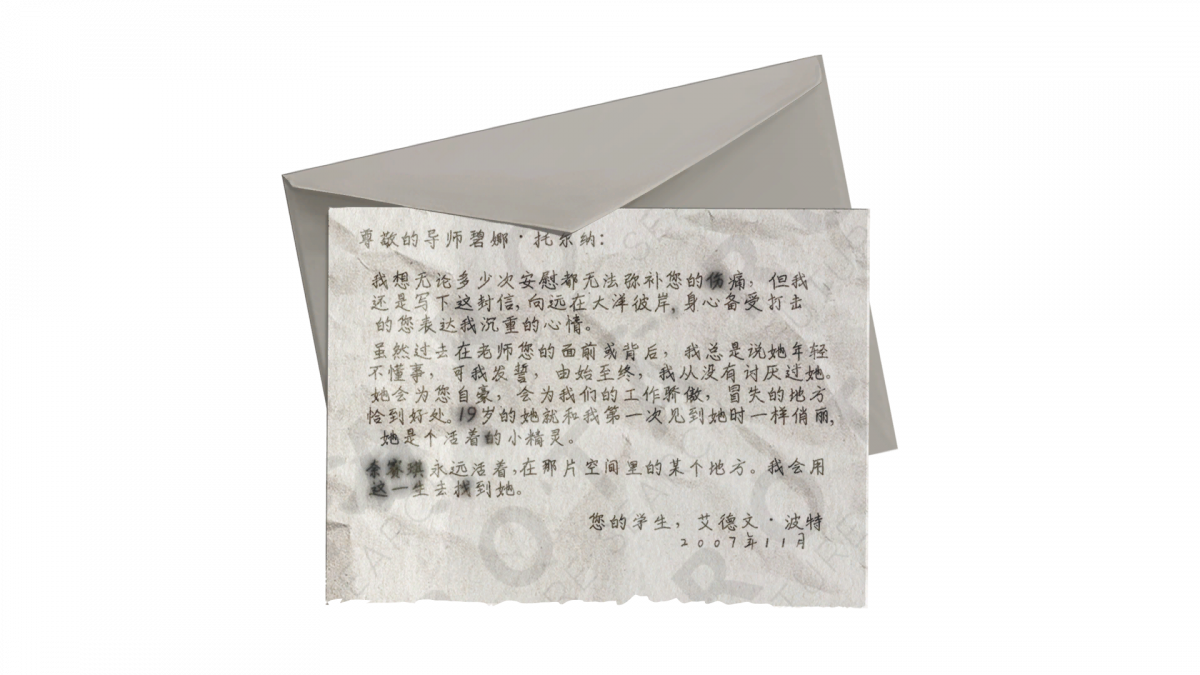 尊敬的导师碧娜·托尔纳：
我想无论多少次安慰都无法弥补您的伤痛，但我
还是写下这封信，向远在大洋彼岸，身心备受打击
的您表达我沉重的心情。
虽然过去在老师您的面前或背后，我总是说她年轻
不懂事，可我发誓，由始至终，我从没有讨厌过她。
她会为您自豪，会为我们的工作骄傲，冒失的地方
恰到好处。19岁的她就和我第一次见到她时一样俏丽，
她是个活着的小精灵。
余赛琪永远活着，在那片空间里的某个地方。我会用
这一生去找到她。
您的学生，艾德文·波特
2007年11月